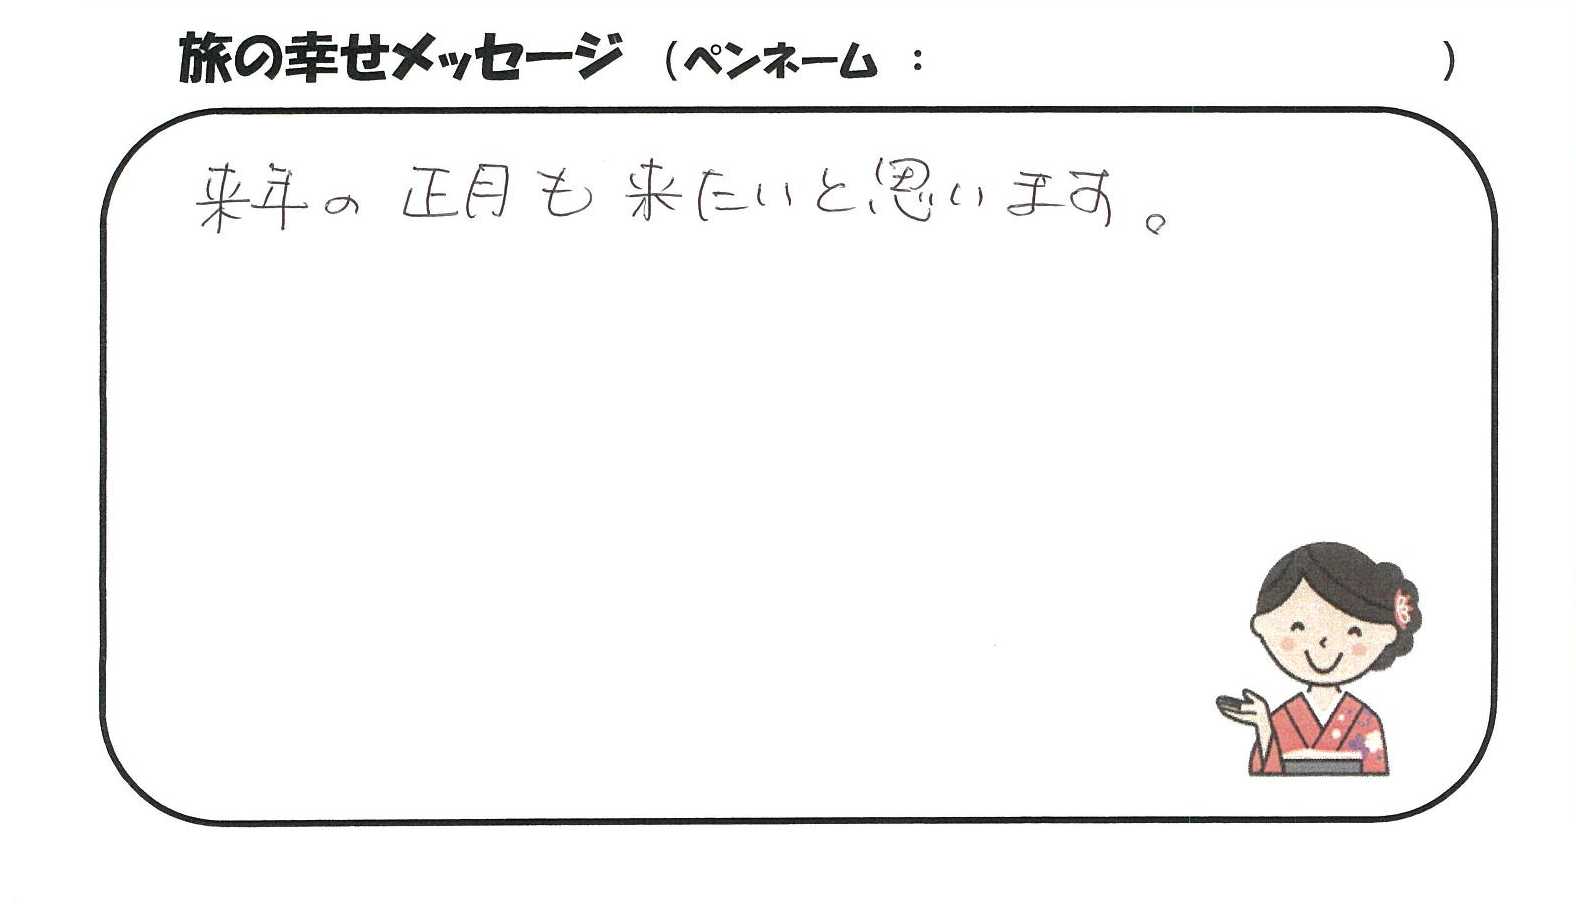 旅の幸せメッセージ （ペンネーム ： ）
来年の正月も来たいと思います。